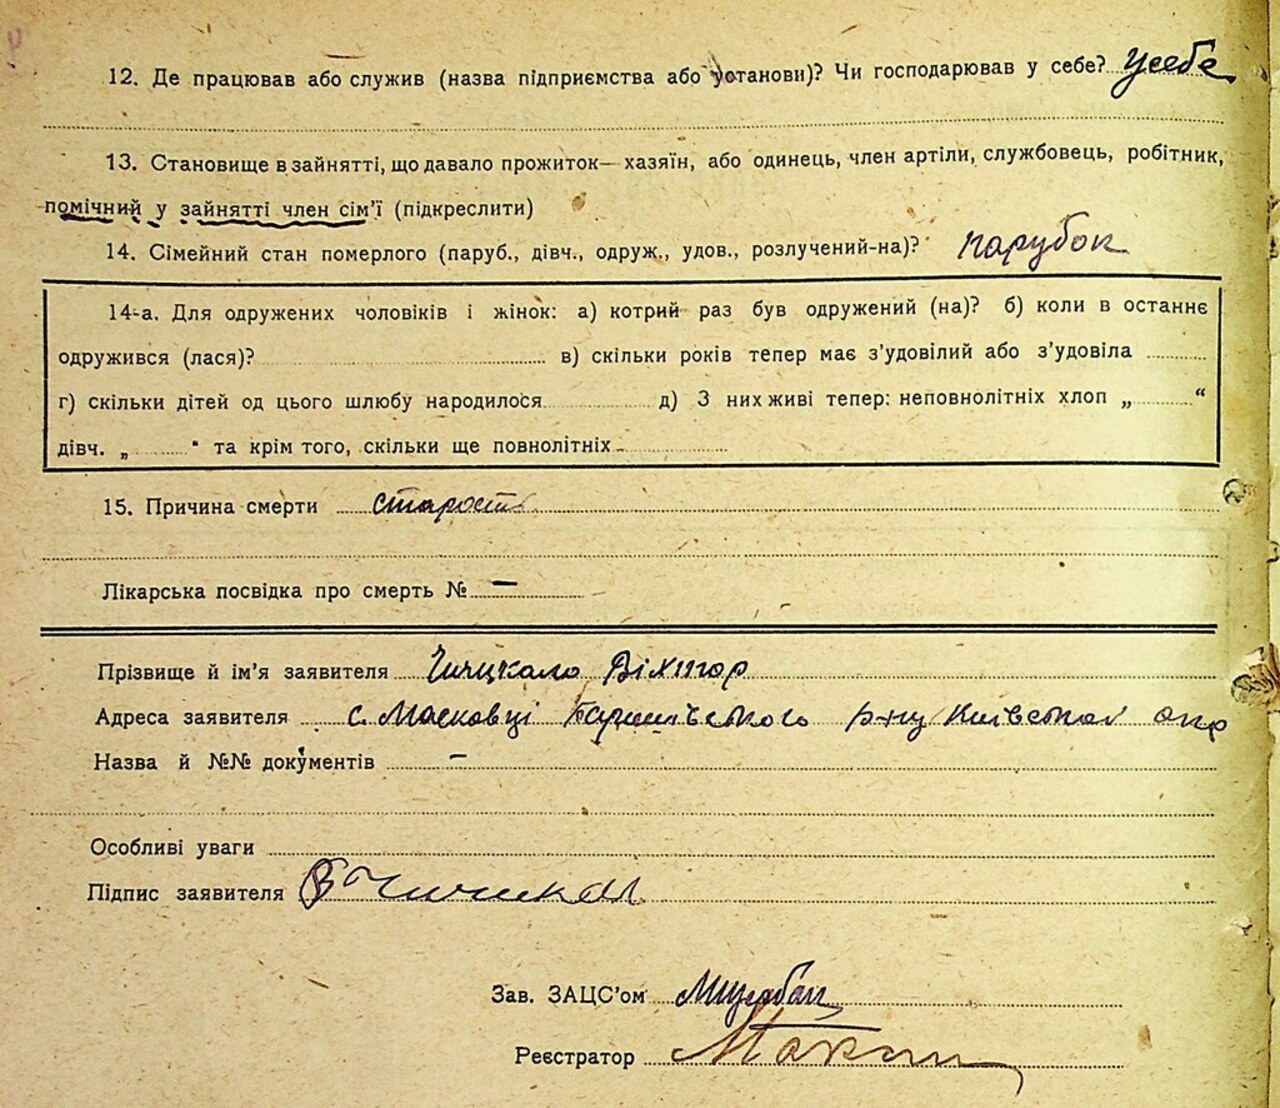 12. Де працював або служив (назва підприємства або установи)? Чи господарював у себе? у себе
13. Становище в зайнятті, що давало прожиток— хазяїн, або одинець, член артіли, службовець, робітник,
помічний у зайнятті член сім'ї (підкреслити)
14. Сімейний стан померлого (паруб., дівч., одруж., удов., розлучений-на)? парубок
14-а. Для одружених чоловіків і жінок: а) котрий раз був одружений (на)? б) коли в останнє
одружився (лася)? в) скільки років тепер має з'удовілий або з'удовіла
г) скільки дітей од цього шлюбу народилося д) З них живі тепер: неповнолітніх хлоп „ “
дівч. „ “ та крім того, скільки ще повнолітніх
15. Причина смерти старость
Лікарська посвідка про смерть № —
Прізвище й ім'я заявителя Чичкало Віктор
Адреса заявителя с. Масковці Баришівського р-ну Київської окр
Назва й №№ документів —
Особливі уваги
Підпис заявителя В
Зав. ЗАЦС'ом
Реєстратор